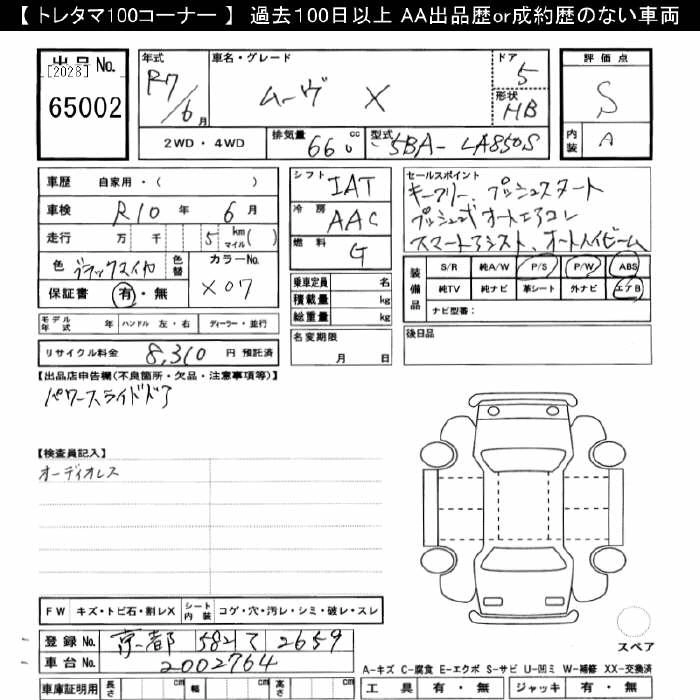 【 トレタマ100コーナー 】 過去100日以上 AA出品歴or成約歴のない車両
出品 No.
[2028]
65002
年式 R7/6月
車名・グレード ムーヴ X
ドア 5
形状 HB
2WD ・ 4WD
排気量 660 cc
型式 5BA-LA850S
評価点 S
内装 A
車歴 自家用・( )
車検 R10年 6月
走行 万 千 5 km マイル( )
色 ブラックマイカ 色替 カラーNo. X07
保証書 有・無
シフト IAT
冷房 AAC
燃料 G
乗車定員 名
積載量 kg
総重量 kg
名変期限 月 日
セールスポイント
キーフリー、プッシュスタート
プッシュ式オートエアコン
スマートアシスト、オートハイビーム
装備品 S/R 純A/W P/S P/W ABS
純TV 純ナビ 革シート 外ナビ エアB
ナビ型番:
モデル年式 年 ハンドル 左・右 ディーラー・並行
リサイクル料金 8,310 円 預託済
後日品
【出品店申告欄(不良箇所・欠品・注意事項等)】
パワースライドドア
【検査員記入】
オーディオレス
FW キズ・トビ石・割レX シート内装 コゲ・穴・汚レ・シミ・破レ・スレ
登録 No. 京都 582 て 2659
車台 No. 2002764
車庫証明用 長さ cm 幅 cm 高さ cm
スペア
A-キズ C-腐食 E-エクボ S-サビ U-凹ミ W-補修 XX-交換済
工具 有・無 ジャッキ 有・無